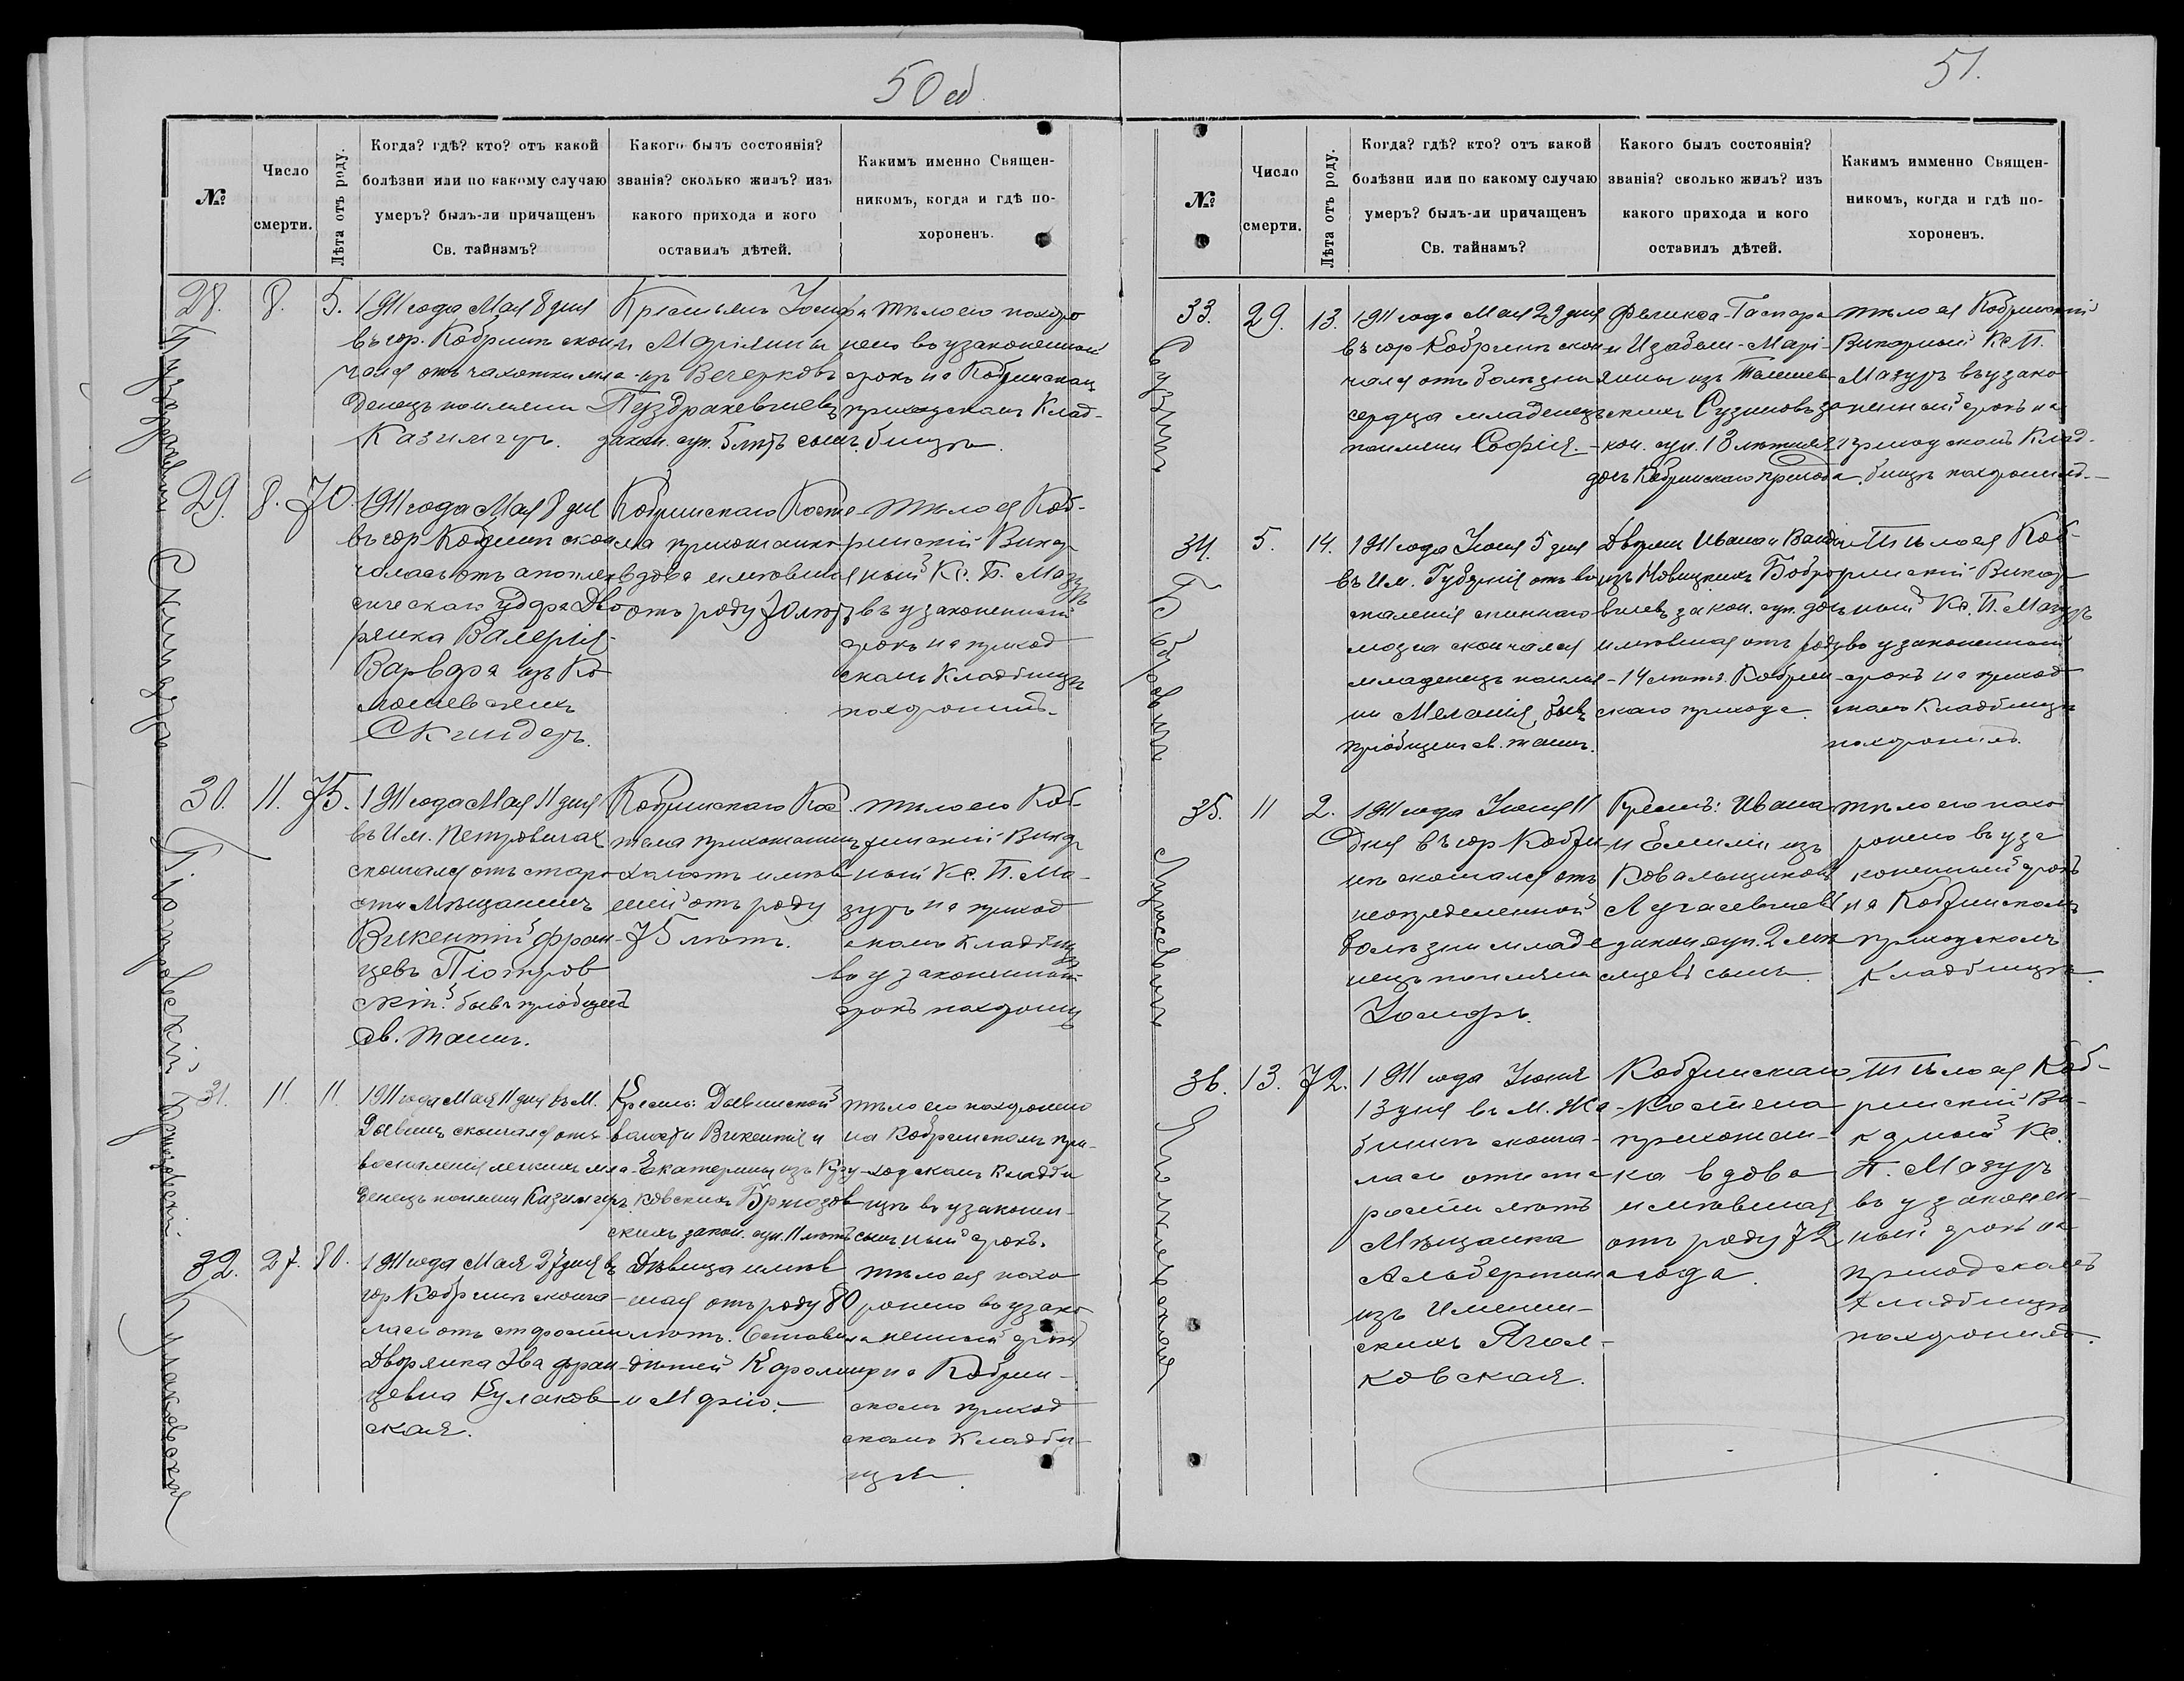 50 об
№
Число
смерти.
Лѣта отъ роду.
Когда? гдѣ? кто? отъ какой
болѣзни или по какому случаю
умеръ? былъ-ли причащенъ
Св. тайнамъ?
Какого былъ состоянія?
званія? сколько жилъ? изъ
какого прихода и кого
оставилъ дѣтей.
Какимъ именно Священ-
никомъ, когда и гдѣ по-
хороненъ.
28.
8.
5.
1911 года Мая 8 дня
въ гор. Кобринѣ скон
чался отъ чахотки мла-
денецъ по имени
Казимиръ.
Крестьянъ Іосифа
и Маріянны
изъ Вечерковъ
Пуздракевичевъ
закон. суп. 5 лѣтъ сынъ.
тѣло его похоро
нено въ узаконенный
срокъ на Кобринскомъ
приходскомъ Клад-
бищѣ.
29.
8.
70.
1911 года Мая 8 дня
въ гор Кобринѣ скон
чалась отъ апоплек
сическаго удара Дво
рянка Валерія
Варвара изъ Ко
Скиндеръ.
Кобринскаго Косте-
ла прихожанка
вдова имѣвшая
отъ роду 70 лѣтъ
тѣло ея Коб-
ринскій Викар
ный Кс. П. Мазуръ
въ узаконенный
срокъ на приход
скомъ Кладбищѣ
похоронилъ.
30.
11.
75.
1911 года Мая 11 дня
въ Им. Петровичах
скончался отъ старо
сти Мѣщанинъ
Викентій Фран-
цевъ Піотров
скій. бывъ пріобщенъ
Св. Таинъ.
Кобринскаго Кос-
тела прихожанинъ
холостъ имѣв
шій отъ роду
75 лѣтъ.
тѣло его Коб-
ринскій Викар
ный Кс. П. Ма-
зуръ на приход
скомъ Кладбищѣ
въ узаконенный
срокъ похоронилъ
31.
11.
11.
1911 года Мая 11 дня въ М.
Дывинъ скончался отъ
воспаленія легкихъ мла-
денецъ по имени Казимиръ
Крестьян: Дывинской
волости Викентія и
Екатерины изъ
Бржозов
скихъ закон. суп. 11 лѣтъ сынъ.
тѣло его похоронено
на Кобринскомъ при-
ходскомъ Кладби
щѣ въ узаконен-
ный срокъ.
32.
27.
80.
1911 года Мая 27 дня въ
гор Кобринѣ сконча-
лась отъ старости
Дворянка Эва Фран-
цевна Кулаков
ская.
Дѣвица имѣв
шая отъ роду 80
лѣтъ. Оставила
дѣтей Каролину
и Марію.
тѣло ея похо
ронено въ узако
ненный срокъ
на Кобрин-
скомъ приход
скомъ Кладби-
щѣ.
Пуздракевичъ
Скиндеръ
Піотровскій
Бржозовскій
Кулаковская
51.
№
Число
смерти.
Лѣта отъ роду.
Когда? гдѣ? кто? отъ какой
болѣзни или по какому случаю
умеръ? былъ-ли причащенъ
Св. тайнамъ?
Какого былъ состоянія?
званія? сколько жилъ? изъ
какого прихода и кого
оставилъ дѣтей.
Какимъ имменно Священ-
никомъ, когда и гдѣ по-
хороненъ.
33.
29.
13.
1911 года Мая 29 дня
въ гор Кобринѣ скон
чался отъ болѣзни
сердца младенецъ
по имени Софія.
Феликса-Гаспара
и Изабели-Марі-
янны изъ
Сузиновъ за
кон. суп. 13 лѣтняя
дочь Кобринскаго прихода.
тѣло ея Кобринскій
Викарный Кс. П.
Мазуръ въ узако
ненный срокъ на
приходскомъ Клад-
бищѣ похоронилъ.
34.
5.
14.
1911 года Іюня 5 дня
въ Им. Губернія отъ во
спаленія спиннаго
мозга скончался
младенецъ по име
ни Меланія, бывъ
пріобщена св. таинъ.
Дворян Ивана и Ванды
изъ Новицкихъ Бобро
вичевъ закон. суп. дочь
имѣвшая отъ роду
14 лѣтъ. Кобрин-
скаго прихода.
Тѣло ея Коб-
ринскій Викар
ный Кс. П. Мазуръ
въ узаконенный
срокъ на приход
скомъ Кладбищѣ
похоронилъ.
35.
11
2.
1911 года Іюня 11
Дня въ гор Кобри
нѣ скончался отъ
неопределенной
болѣзни младе
нецъ по имени
Іосифъ.
Крестьян: Ивана
и Емиліи изъ
Ковальчиковъ
Лукасевичевъ
закон. суп. 2 мѣ
сяцевъ сынъ.
тѣло его похо
ронено въ уза
коненный срокъ
на Кобринскомъ
приходскомъ
Кладбищѣ.
36.
13.
72.
1911 года Іюня
13 дня въ М. Жа-
бинкѣ сконча-
лась отъ ста
рости лѣтъ
Мѣщанка
Альбертина
изъ
ковская.
Кобринскаго
Костела
прихожан-
ка вдова
имѣвшая
отъ роду 72
года.
Тѣло ея Коб-
ринскій Ви-
карный Кс.
П. Мазуръ
въ узаконен-
ный срокъ на
приходскомъ
Кладбищѣ
похоронилъ.
Сузинъ
Бобровичъ
Лукасевичъ